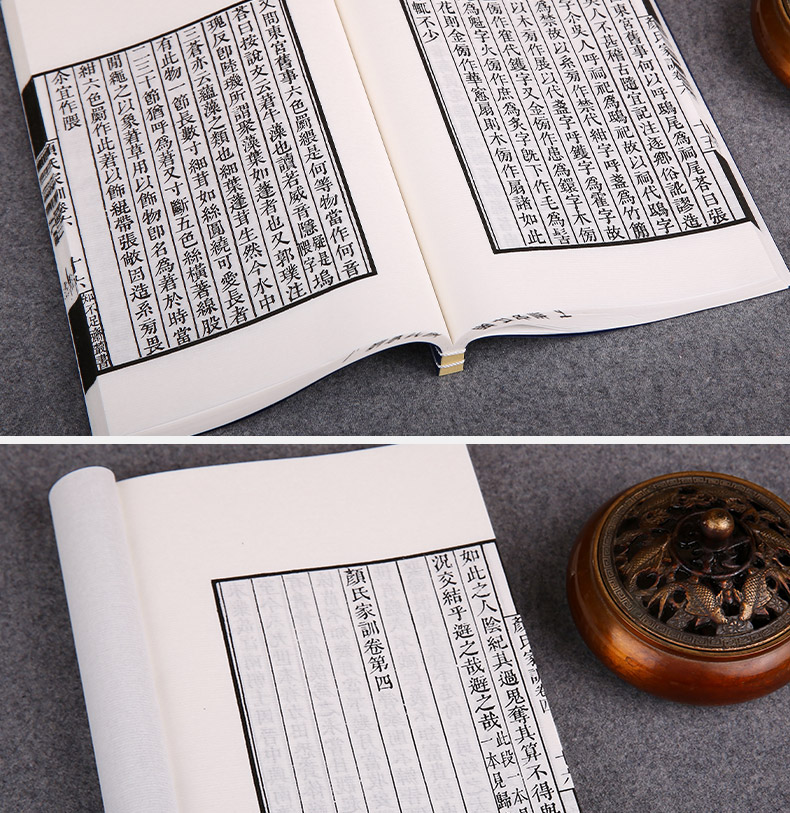 顏氏家訓卷六
十五
東宮舊事何以呼鴟尾爲祠尾答曰張
人不甚稽古隨宜記注逐鄉俗訛謬造
吳人呼祠祀爲鴟祀故以祠代鴟字
爲禁故以糸旁作禁代紺字呼盞爲竹簡
以木傍作展以代盞字呼鑊字爲霍字故
傍作霍代鑊字又金傍作患爲鐶字木傍
爲魁字火傍作庶爲炙字旣下作毛爲髻
花則金傍作華窗扇則木傍作扇諸如此
輒不少
又問東宮舊事六色罽緦是何等物當作何音
答曰按說文云莙牛藻也讀若威音隱 疑是隈字 塢
瑰反卽陸璣所謂聚藻葉如蓬者也又郭璞注
三蒼亦云蘊藻之類也細葉蓬茸生然今水中
有此物一節長數寸細茸如絲圓繞可愛長者
二三十節猶呼爲莙又寸斷五色絲橫著線股
間繩之以象莙草用以飾物卽名爲莙於時當
紺六色罽作此莙以飾緄帶張敞因造糸旁畏
尒宜作隈
顏氏家訓卷六
十六
知不足齋叢書
顏氏家訓卷四
十六
如此之人陰紀其過鬼奪其算不得與
況交結乎避之哉避之哉 此段一本 一本見歸
顏氏家訓卷第四